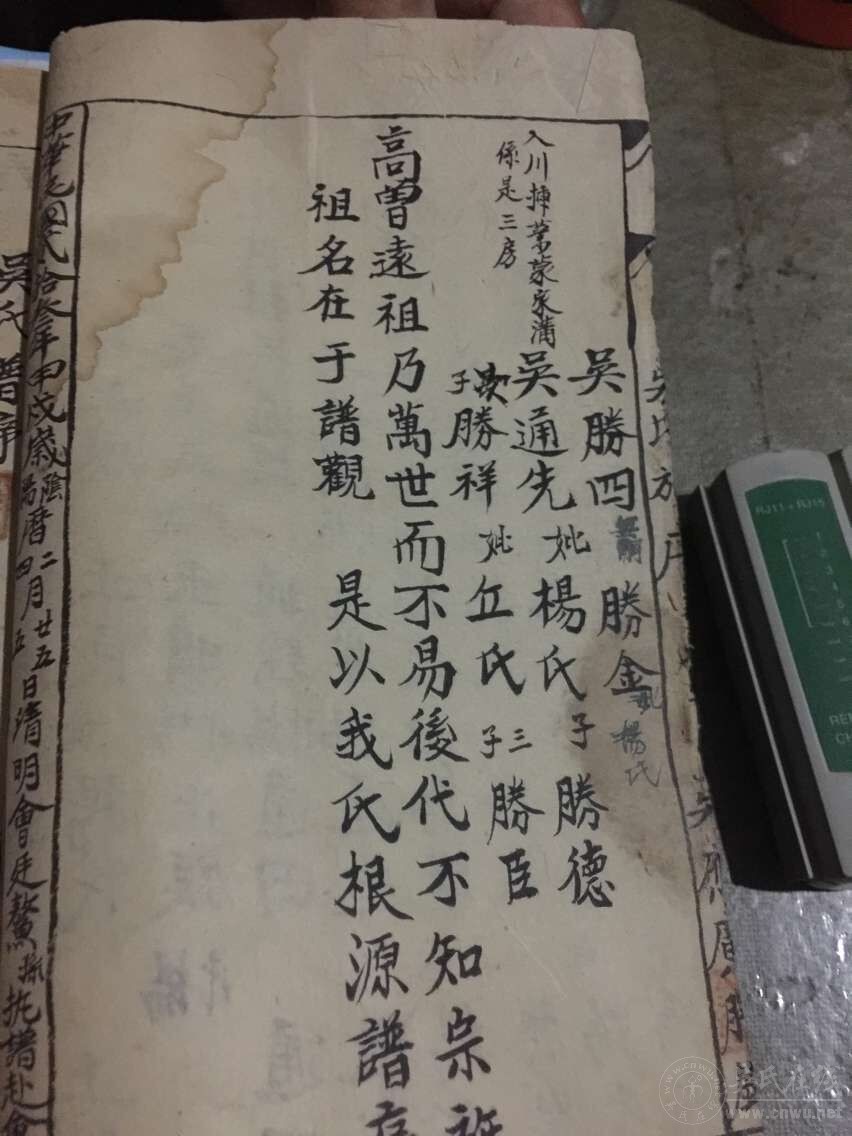 吳勝四 無嗣 勝金 妣楊氏
入川插業蒙家溝
係是三房
吳通先 妣楊氏 子勝德
次子勝祥 妣丘氏 三子勝臣
高曾遠祖乃萬世而不易後代不知宗
祖名在于譜觀 是以我氏根源譜
中華民國弍拾叁年甲戌歲陰陽曆二四月廿五五日清明會廷鰲執譜赴會
吳氏譜序
RJ11+RJ45
www.cnwu.net